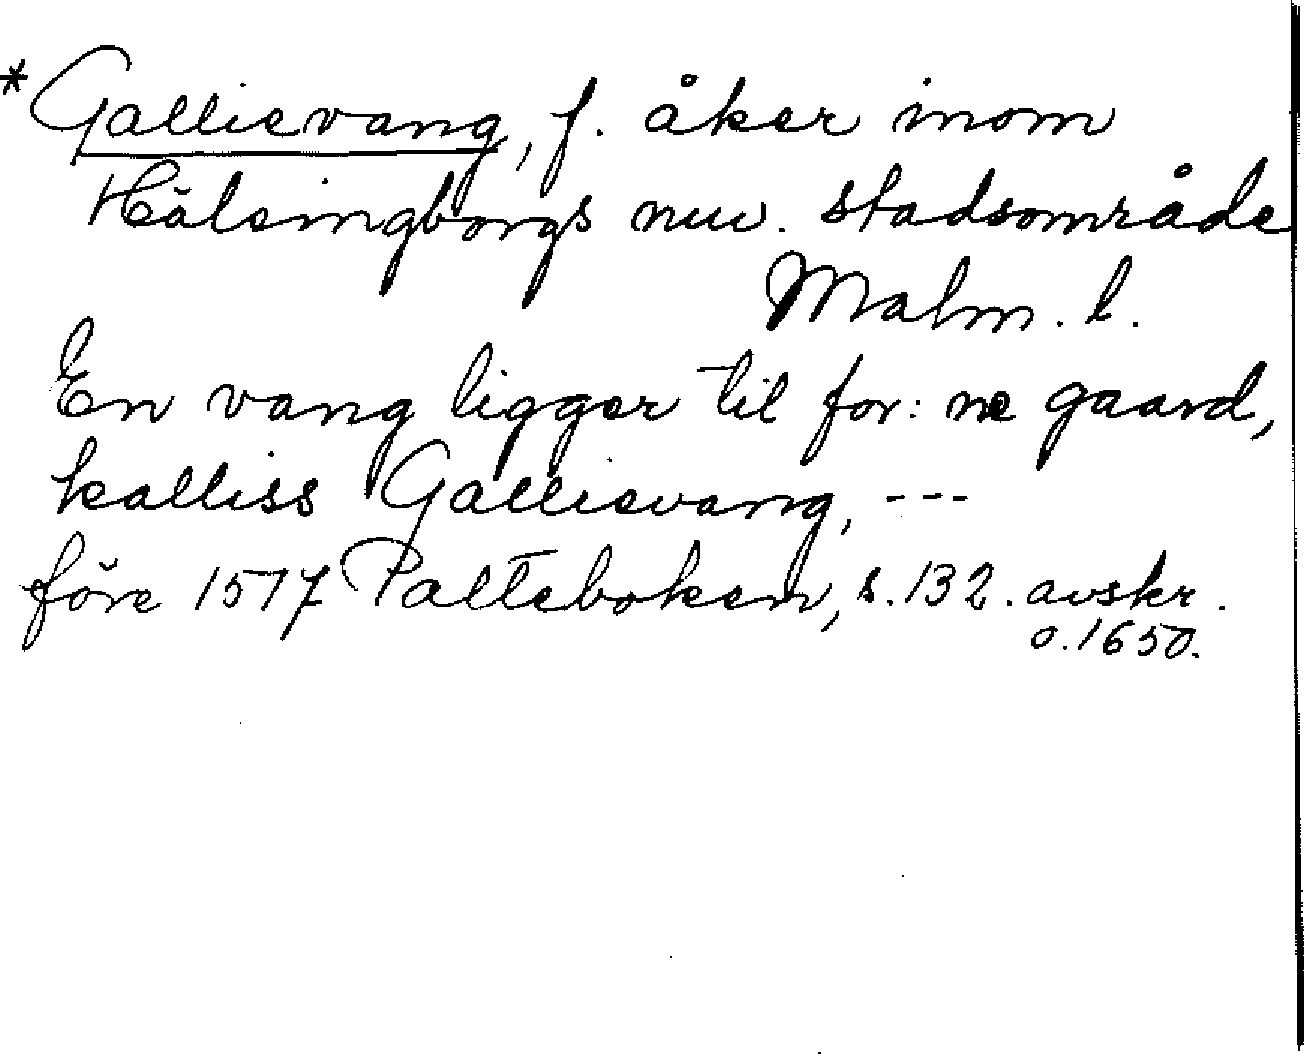 *Gallievang, f. åker inom
Hälsingborgs nuv. stadsområde
Malm. l.
En vang ligger til for: ne gaard,
kalliss Gallievang, ---
före 1517 Palteboken, s. 132. avskr.
o. 1650.